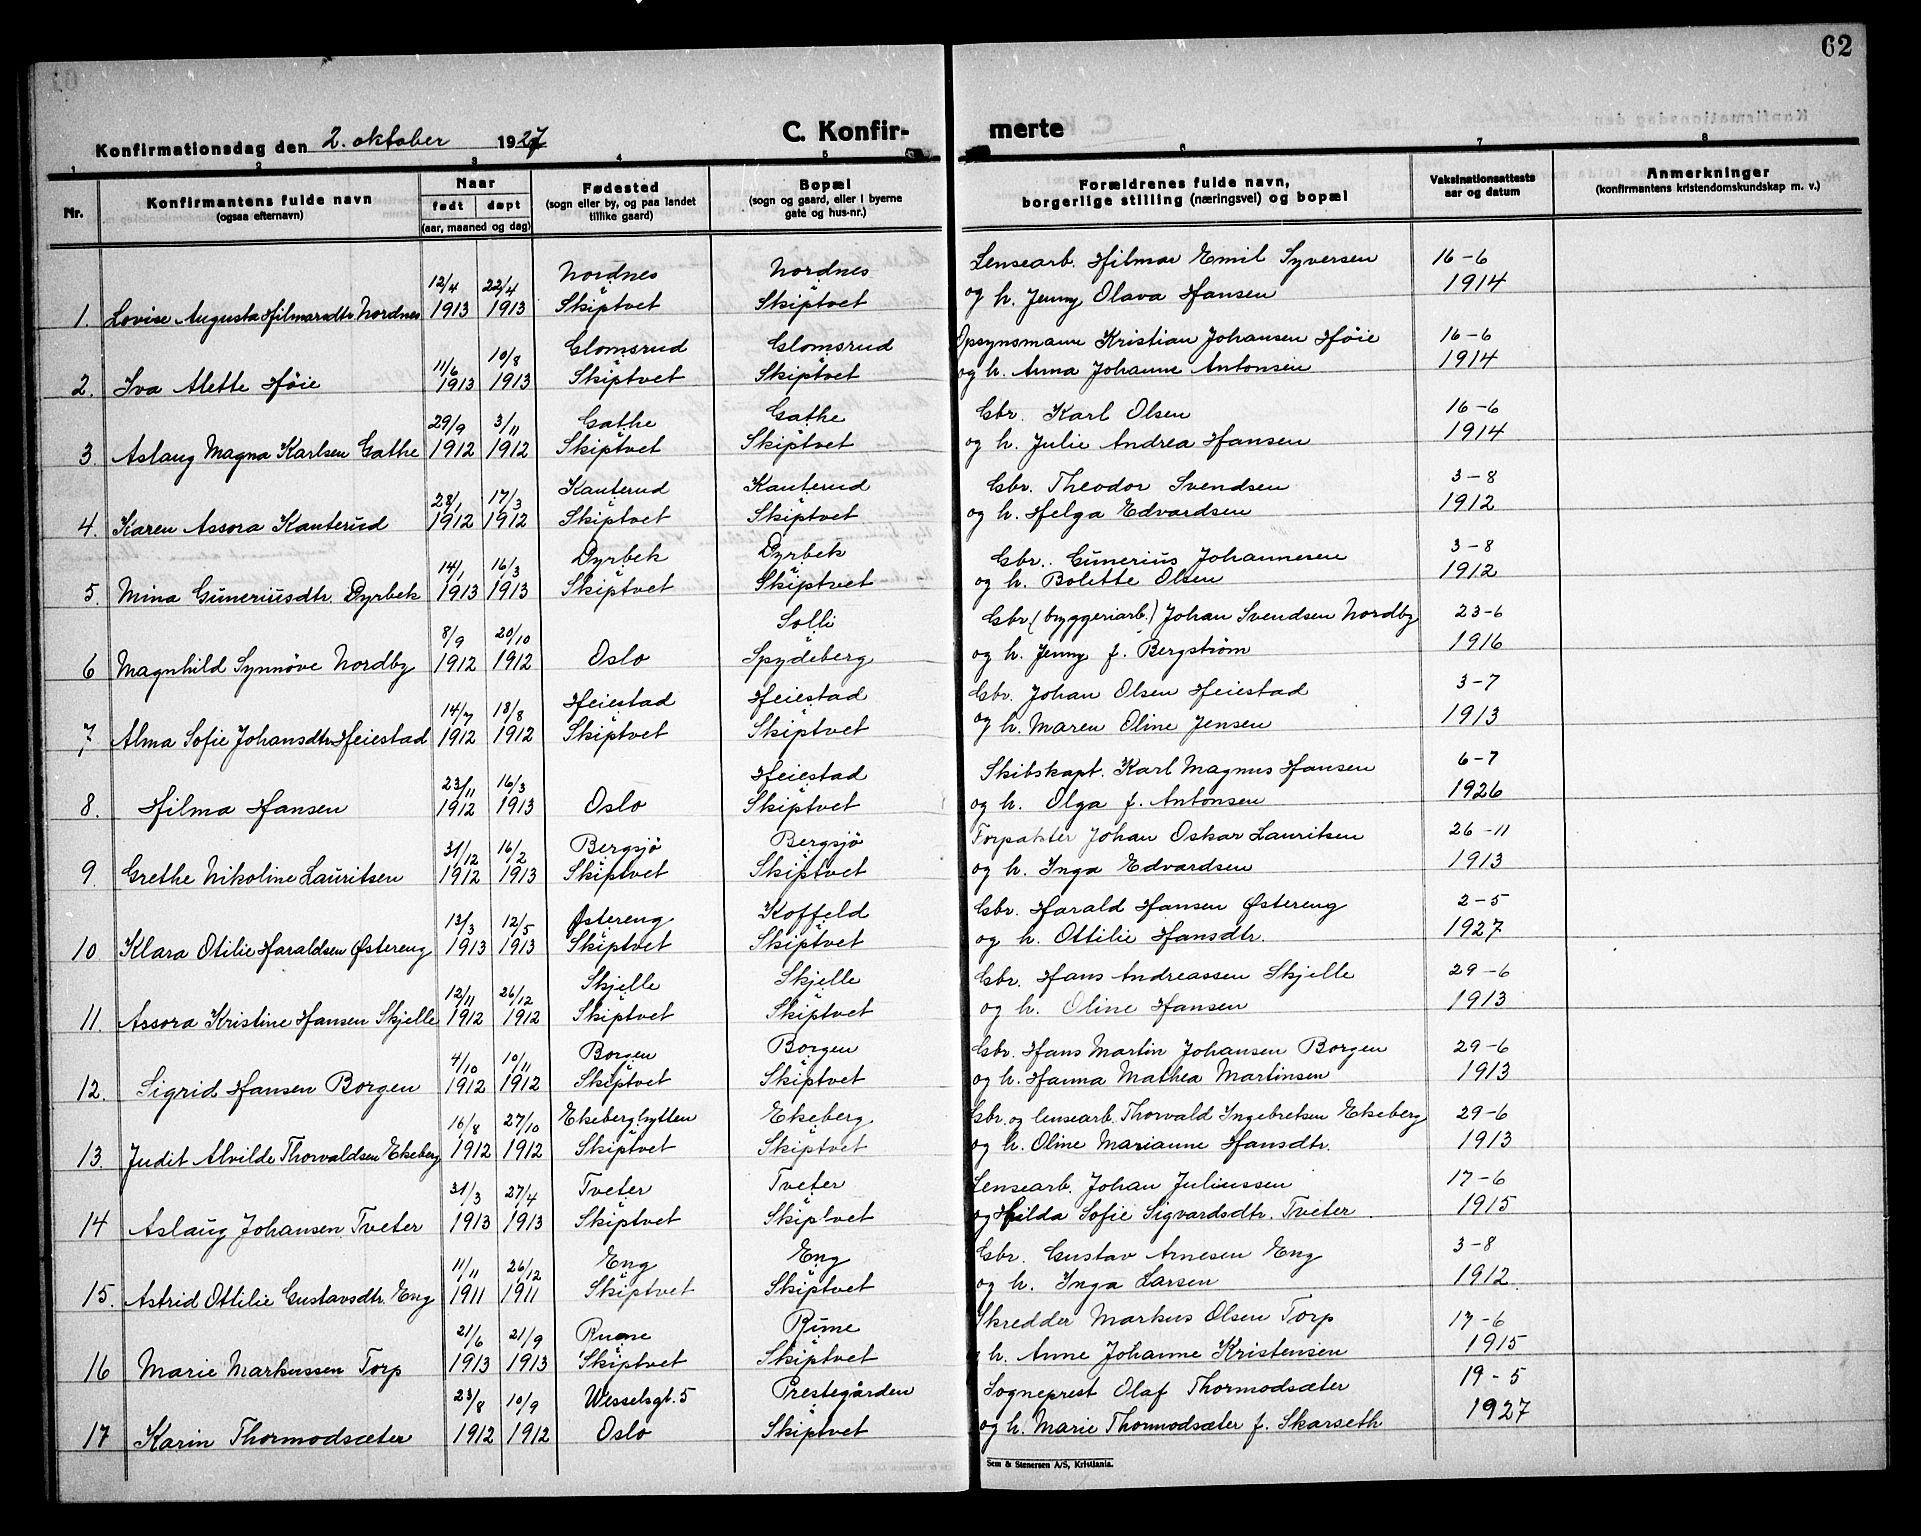 62
Konfirmationsdag den 2. oktober 1927
C. Konfir-
merte
1 2 3 4 5 6 7 8
Nr.
Konfirmantens fulde navn
(ogsaa efternavn)
Naar
født døpt
(aar, maaned og dag)
Fødested
(sogn eller by, og paa landet
tillike gaard)
Bopæl
(sogn og gaard, eller i byerne
gate og hus-nr.)
Forældrenes fulde navn,
borgerlige stilling (næringsvei) og bopæl
Vaksinationsattests
aar og datum
Anmerkninger
(konfirmantens kristendomskundskap m. v.)
12/4 22/4 Nordnes Nordnes Lensearb. Hilmar Emil Syversen 16-6
1. Lovise Augusta Hilmarsdtr Nordnes 1913 1913 Skiptvet Skiptvet og h. Jenny Olava Hansen 1914
11/6 10/8 Glomsrud Glomsrud Opsynsmann Kristian Johansen Høie 16-6
2. Iva Alette Høie 1913 1913 Skiptvet Skiptvet og h. Anna Johanne Antonsen 1914
29/9 3/11 Gathe Gathe Gbr. Karl Olsen 16-6
3. Aslaug Magna Karlsen Gathe 1912 1912 Skiptvet Skiptvet og h. Julie Andrea Hansen 1914
28/1 17/3 Kanterud Kanterud Gbr. Theodor Svendsen 3-8
4. Karen Assora Kanterud 1912 1912 Skiptvet Skiptvet og h. Helga Edvardsen 1912
14/1 16/3 Dyrbek Dyrbek Gbr. Gunerius Johannesen 3-8
5. Mina Guneriusdtr. Dyrbek 1913 1913 Skiptvet Skiptvet og h. Bolette Olsen 1912
8/9 20/10 Solli Gbr (bryggeriarb.) Johan Svendsen Nordby 23-6
6 Magnhild Synnøve Nordby 1912 1912 Oslo Spydeberg og h. Jenny f. Bergstrøm 1916
14/7 18/8 Heiestad Heiestad Gbr. Johan Olsen Heiestad 3-7
7 Alma Sofie Johansdtr Heiestad 1912 1912 Skiptvet Skiptvet og h. Maren Oline Jensen 1913
23/11 16/3 Heiestad Skibskapt. Karl Magnus Hansen 6-7
8. Hilma Hansen 1912 1913 Oslo Skiptvet og h. Olga f. Antonsen 1926
31/12 16/2 Bergsjø Bergsjø Forpakter Johan Oskar Lauritsen 26-11
9. Grethe Nikoline Lauritsen 1912 1913 Skiptvet Skiptvet og h. Inga Edvardsen 1913
13/3 12/5 Østereng Koffeld Gbr. Harald Hansen Østereng 2-5
10. Klara Otilie Haraldsen Østereng 1913 1913 Skiptvet Skiptvet og h. Ottilie Hansdtr. 1927
12/11 26/12 Skjelle Skjelle Gbr. Hans Andreassen Skjelle 29-6
11. Assora Kristine Hansen Skjelle 1912 1912 Skiptvet Skiptvet og h. Oline Hansen 1913
4/10 10/11 Borgen Borgen Gbr. Hans Martin Johansen Borgen 29-6
12. Sigrid Hansen Borgen 1912 1912 Skiptvet Skiptvet og h. Hanna Mathea Martinsen 1913
16/8 27/10 Ekeberghytten Ekeberg Gbr. og lensearb. Thorvald Ingebretsen Ekeberg 29-6
13. Judit Alvilde Thorvaldsen Ekeberg 1912 1912 Skiptvet Skiptvet og h. Oline Marianne Hansdtr. 1913
31/3 27/4 Tveter Tveter Lensearb. Johan Juliussen 17-6
14 Aslaug Johansen Tveter 1913 1913 Skiptvet Skiptvet og Hilda Sofie Sigvardsdtr. Tveter 1915
11/11 26/12 Eng Eng Gbr. Gustav Arnesen Eng 3-8
15. Astrid Ottilie Gustavsdtr. Eng 1911 1911 Skiptvet Skiptvet og h. Inga Larsen 1912
21/6 21/9 Rume Rume Skredder Markus Olsen Torp 17-6
16 Marie Markussen Torp 1913 1913 Skiptvet Skiptvet h. Anne Johanne Kristensen 1915
23/8 10/9 Wesselsgt. 5 Prestegården Sogneprest Olaf Thormodsæter 19-5
17 Karin Thormodsæter 1912 1912 Oslo Skiptvet og h. Marie Thormodsæter f. Skarseth 1927
Sem & Stenersen A/S, Kristiania.